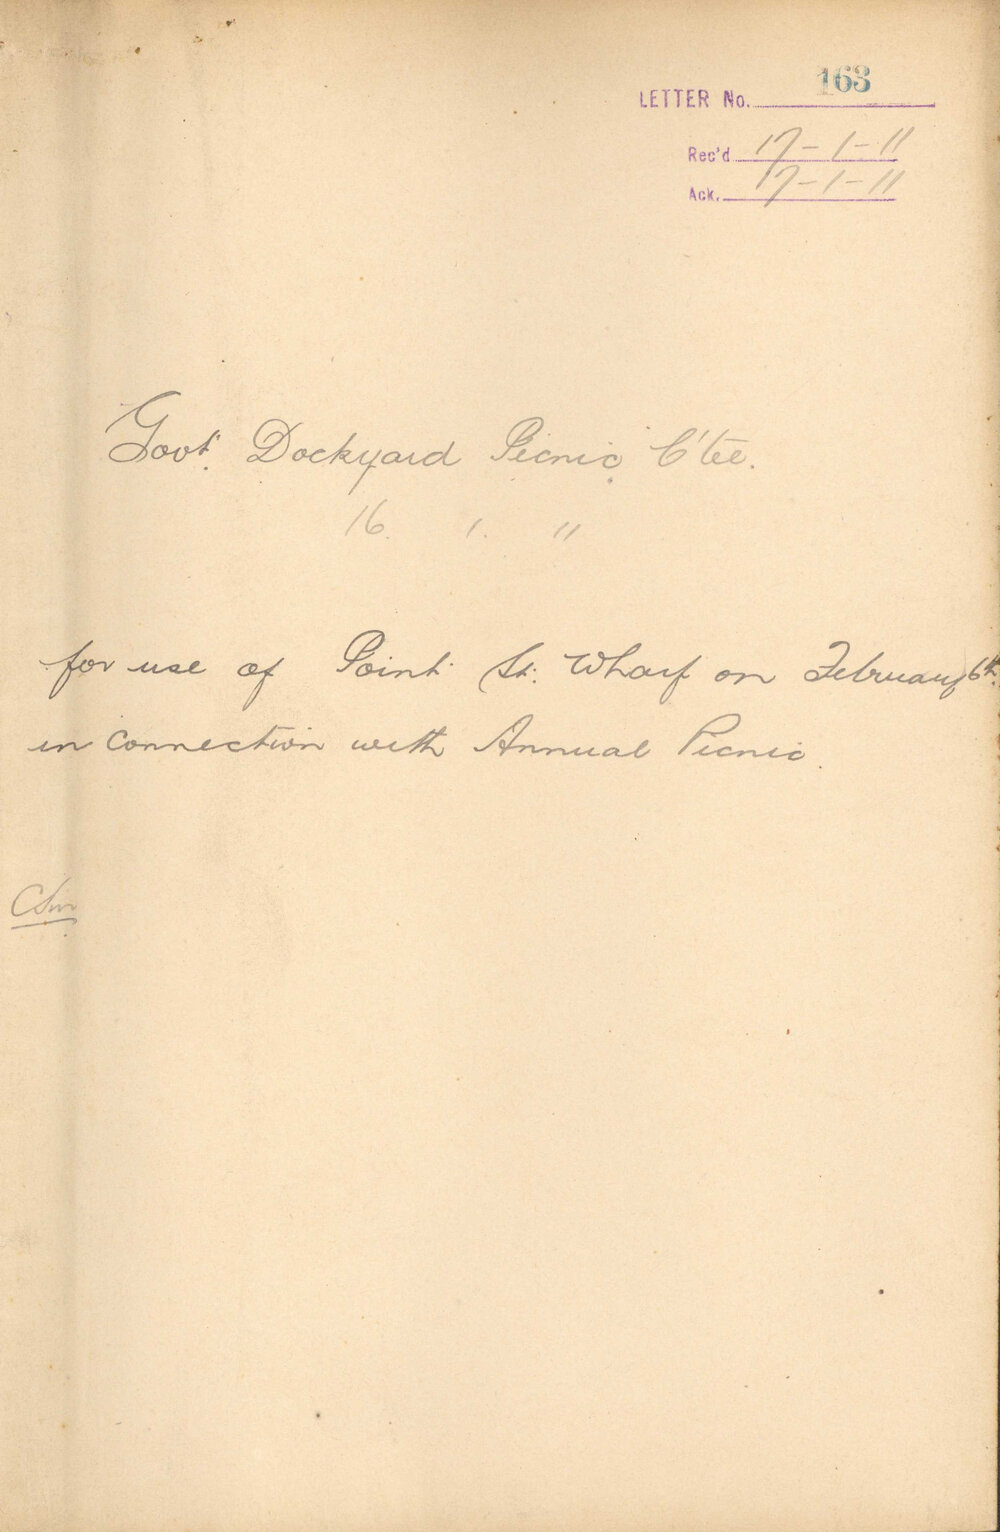 LETTER No. 163
Rec'd 17-1-11
Ack. 17-1-11
Govt. Dockyard Picnic C'tee.
16. 1. 11
for use of Point St. Wharf on February 6th.
in connection with Annual Picnic.